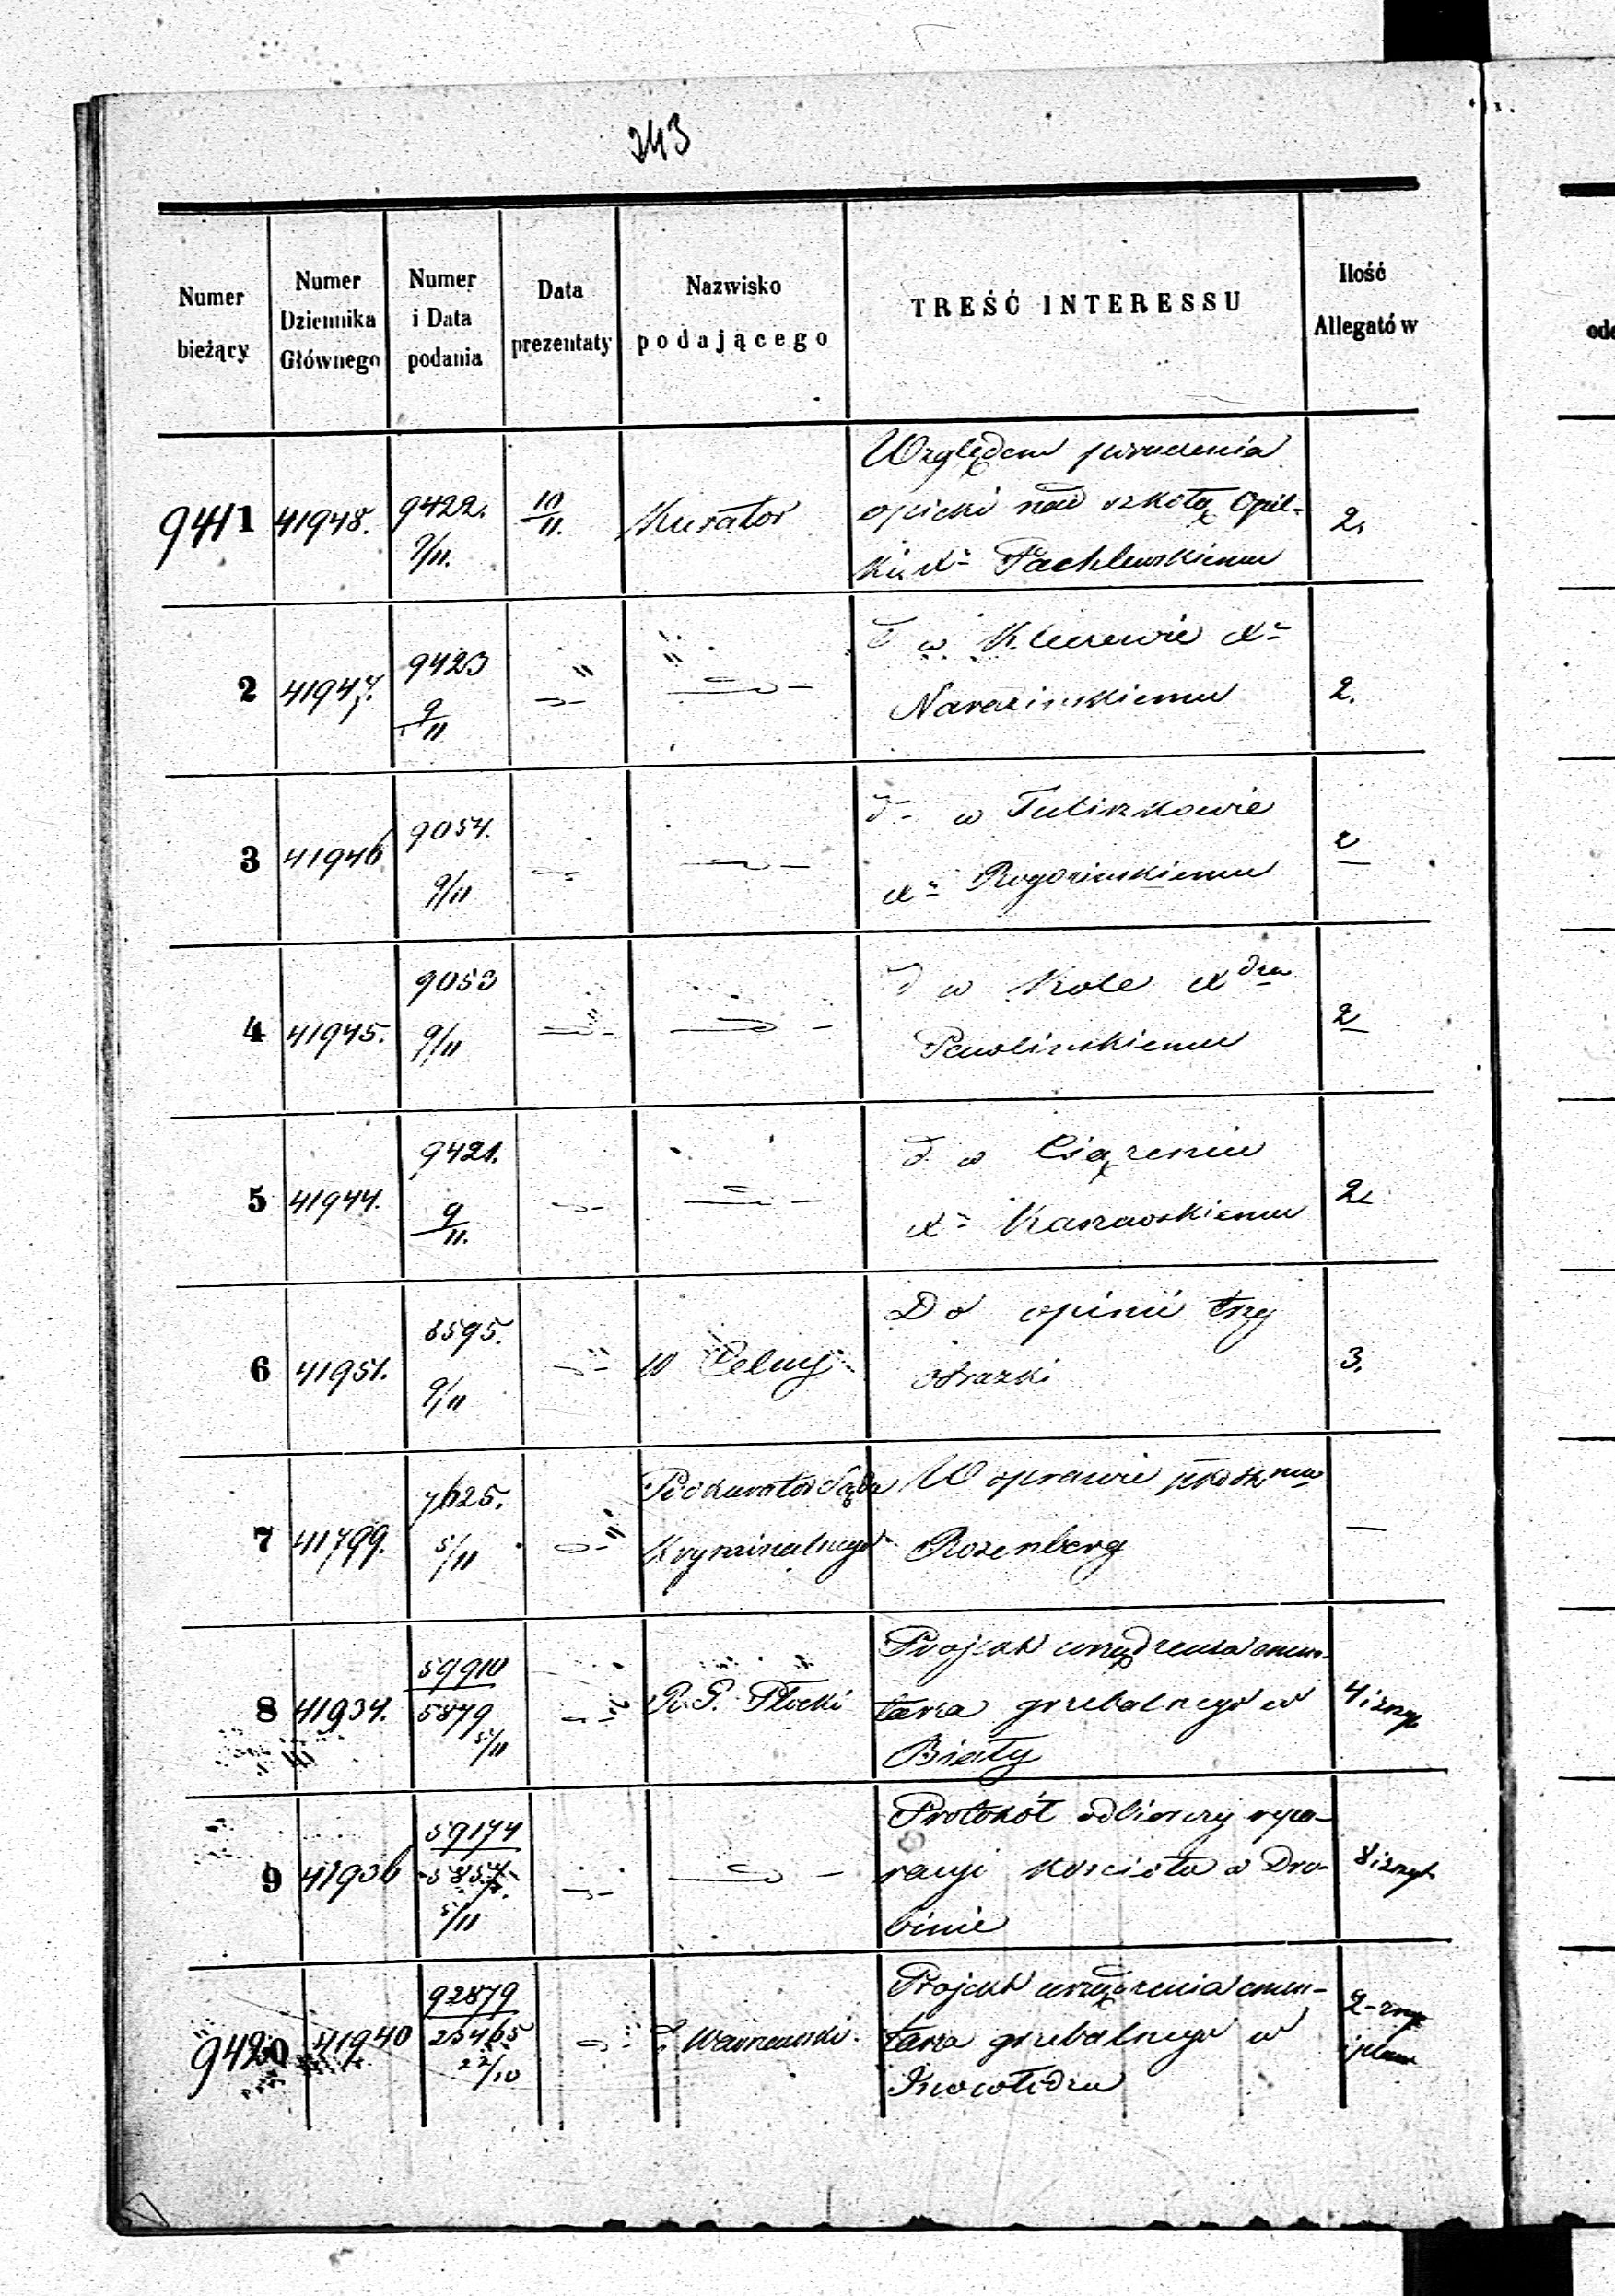 243
Numer bieżący | Numer Dziennika Głównego | Numer i Data podania | Data prezentaty | Nazwisko podającego | TREŚĆ INTERESSU | Ilość Allegatów
9411 | 41948. | 9422. 9/11. | 10/11. | Kurator | Względem
opieki nad szkołą Opil-
Xu Pachlewskiemu | 2.
2 | 41947. | 9423 9/11 | " | " | d w Kleczewie Xu
| 2.
3 | 41946 | 9054. 9/11 | d- w Tuliszkowie
Xu | 2
4 | 41945. | 9053 9/11 | d w Kole Xdzu
Pawlińskiemu | 2
5 | 41944. | 9421. 9/11. | d. w Ciążeniu
Xu Kaszewskiemu | 2
6 | 41951. | 8595. 9/11 | Do opinii trzy
obrazki | 3.
7 | 41799. | 7625. 5/11 | Prokurator Sądu
Kryminalnego | W sprawie
Rozenberg | —
8 | 41934. | 59910 5879 5/11 | R. G. Płocki | Projekt urządzenia cmen-
tarza grzebalnego w
Biały | 4 i
9 | 41936 | 59174 5/11 | Protokół odbiorczy repa-
racyi kościoła w Dro-
binie | 8 i
9420 | 41940 | 92879 23465 22/10 | Projekt urządzenia cmen-
tarza grzebalnego w
Inowłodzu | 2